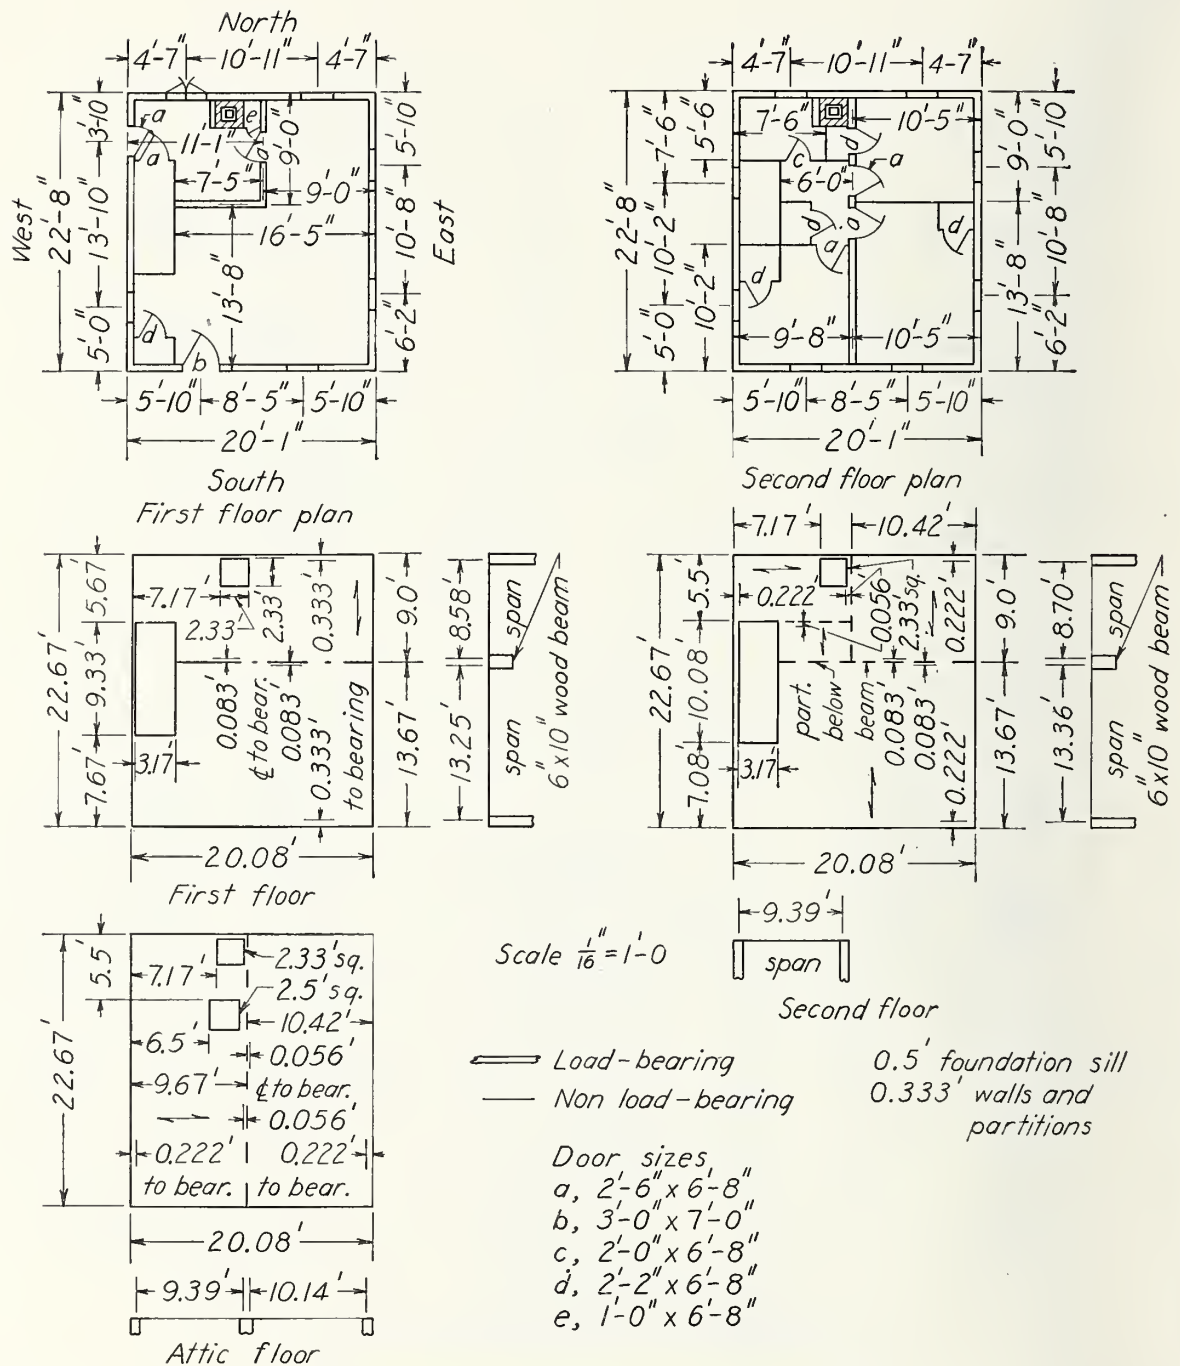 North
4'-7" 10'-11" 4'-7"
3'-10" 13'-10" 5'-0"
22'-8"
West
a
a
e
d
11'-1"
9'-0"
7'-5"
9'-0"
16'-5"
13'-8"
d
b
5'-10" 10'-8" 6'-2"
East
5'-10" 8'-5" 5'-10"
20'-1"
South
First floor plan
4'-7" 10'-11" 4'-7"
22'-8"
7'-6" 10'-2" 5'-0"
5'-6" 10'-2"
7'-6"
10'-5"
c
d
a
6'-0"
d
a
a
d
d
9'-8" 10'-5"
9'-0" 13'-8"
5'-10" 10'-8" 6'-2"
5'-10" 8'-5" 5'-10"
20'-1"
Second floor plan
22.67'
5.67' 9.33' 7.67'
7.17'
2.33'
2.33'
0.333'
3.17'
0.083'
₵ to bear.
0.083'
0.333'
to bearing
9.0' 13.67'
8.58' 13.25'
span
span
6"x10" wood beam
20.08'
First floor
7.17' 10.42'
22.67'
5.5' 10.08' 7.08'
0.222'
0.056'
2.33' sq.
0.222'
3.17'
part.
below
beam
0.083'
0.083'
0.222'
9.0' 13.67'
8.70' 13.36'
span
span
6"x10" wood beam
20.08'
9.39'
span
Second floor
5.5'
22.67'
7.17'
2.33' sq.
2.5' sq.
10.42'
6.5'
0.056'
9.67'
₵ to bear.
0.056'
0.222' 0.222'
to bear. to bear.
20.08'
9.39' 10.14'
Attic floor
Scale 1/16" = 1'-0
Load-bearing
Non load-bearing
0.5' foundation sill
0.333' walls and
partitions
Door sizes
a, 2'-6" x 6'-8"
b, 3'-0" x 7'-0"
c, 2'-0" x 6'-8"
d, 2'-2" x 6'-8"
e, 1'-0" x 6'-8"